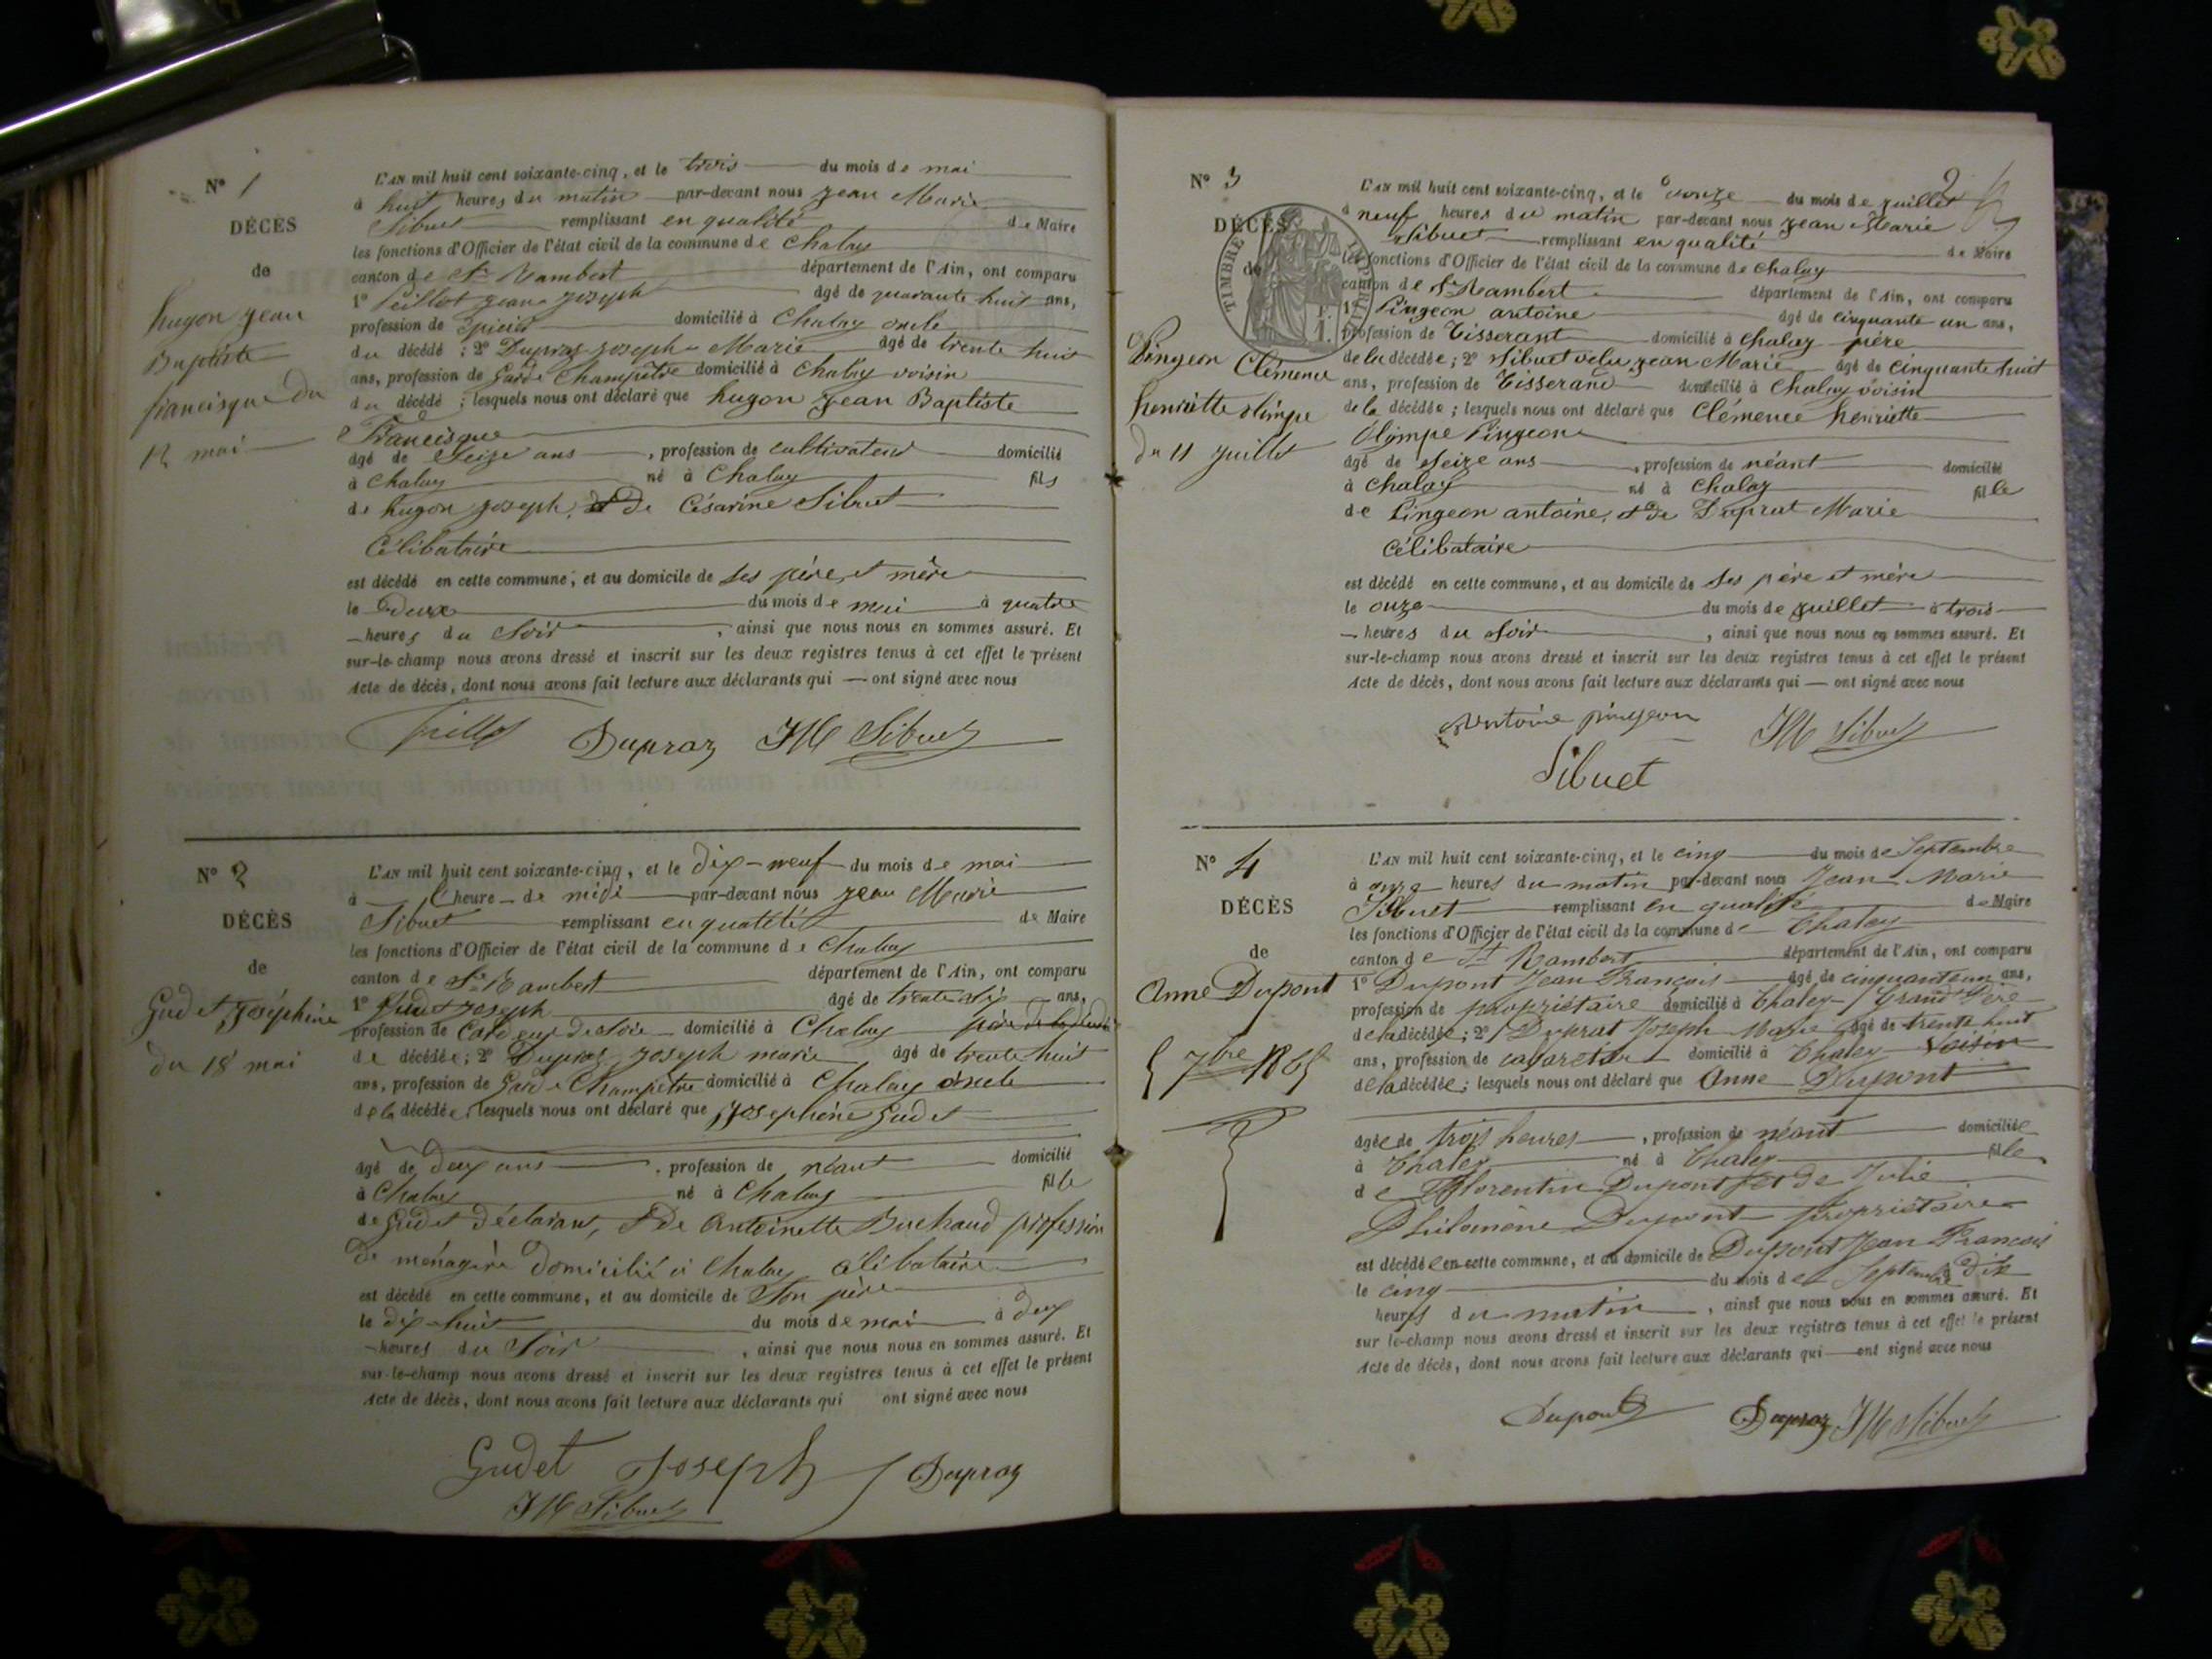 N° 1
DÉCÈS
de
hugon jean
Baptiste
francisque du
12 mai
L'AN mil huit cent soixante-cinq, et le trois du mois de mai
à huit heures du matin par-devant nous jean Marie
Sibuet remplissant en qualité de Maire
les fonctions d'Officier de l'état civil de la commune de Chaley
canton de St Rambert département de l'Ain, ont comparu
1° jean joseph âgé de quarante huit ans,
profession de domicilié à Chaley oncle
du décédé ; 2° Dupraz joseph Marie âgé de trente huit
ans, profession de Garde Champêtre domicilié à Chaley voisin
du décédé ; lesquels nous ont déclaré que hugon jean Baptiste
Francisque
âgé de Seize ans , profession de cultivateur domicilié
à Chaley né à Chaley fils
de hugon joseph, et de Césarine Sibuet
Célibataire
est décédé en cette commune, et au domicile de Ses père et mère
le Deux du mois de mai à quatre
heures du Soir , ainsi que nous nous en sommes assuré. Et
sur-le-champ nous avons dressé et inscrit sur les deux registres tenus à cet effet le présent
Acte de décès, dont nous avons fait lecture aux déclarants qui ont signé avec nous
Dupraz JM Sibuet
N° 2
DÉCÈS
de
Gudet joséphine
du 18 mai
L'AN mil huit cent soixante-cinq, et le dix-neuf du mois de mai
à heure de midi par-devant nous jean Marie
Sibuet remplissant en qualité de Maire
les fonctions d'Officier de l'état civil de la commune de Chaley
canton de St Rambert département de l'Ain, ont comparu
1° Gudet joseph âgé de trente six ans,
profession de Cardeur de Soie domicilié à Chaley père de la décédé
de décédée ; 2° Dupraz joseph marie âgé de trente huit
ans, profession de Garde Champêtre domicilié à Chaley oncle
de la décédée, lesquels nous ont déclaré que Josephine Gudet
âgé de deux ans , profession de néant domicilié
à Chaley né à Chaley fille
de Gudet déclarant, et de Antoinette Buchaud profession
de ménagère domicilié à Chaley célibataire
est décédé en cette commune, et au domicile de Son père
le dix-huit du mois de mai à deux
heures du Soir , ainsi que nous nous en sommes assuré. Et
sur-le-champ nous avons dressé et inscrit sur les deux registres tenus à cet effet le présent
Acte de décès, dont nous avons fait lecture aux déclarants qui ont signé avec nous
Gudet Joseph Dupraz
JM Sibuet
2
N° 3
DÉCÈS
de
TIMBRE IMPERIAL
Pingeon Clémence
henriette olimpe
du 11 juillet
L'AN mil huit cent soixante-cinq, et le du mois de juillet
à neuf heures du matin par-devant nous jean Marie
Sibuet remplissant en qualité de Maire
les fonctions d'Officier de l'état civil de la commune de Chaley
canton de St Rambert département de l'Ain, ont comparu
1° Pingeon antoine âgé de cinquante un ans,
profession de Tisserant domicilié à Chaley père
de la décédée ; 2° Sibuet jean Marie âgé de cinquante huit
ans, profession de Tisserand domicilié à Chaley voisin
de la décédée ; lesquels nous ont déclaré que Clémence henriette
Olimpe Pingeon
âgé de Seize ans , profession de néant domicilié
à Chaley né à Chaley fille
de Pingeon antoine, et de Duprat Marie
Célibataire
est décédé en cette commune, et au domicile de Ses père et mère
le onze du mois de juillet à trois
heures du Soir , ainsi que nous nous en sommes assuré. Et
sur-le-champ nous avons dressé et inscrit sur les deux registres tenus à cet effet le présent
Acte de décès, dont nous avons fait lecture aux déclarants qui ont signé avec nous
Antoine pingeon JM Sibuet
Sibuet
N° 4
DÉCÈS
de
Anne Dupont
5 7bre 1865
L'AN mil huit cent soixante-cinq, et le cinq du mois de Septembre
à onze heures du matin par-devant nous Jean Marie
Sibuet remplissant en qualité de Maire
les fonctions d'Officier de l'état civil de la commune de Chaley
canton de St Rambert département de l'Ain, ont comparu
1° Dupont Jean François âgé de cinquante un ans,
profession de propriétaire domicilié à Chaley Grand Père
de la décédée ; 2° Duprat Joseph Marie âgé de trente huit
ans, profession de cabaretier domicilié à Chaley Voisin
de la décédée ; lesquels nous ont déclaré que Anne Dupont
âgée de trois heures , profession de néant domiciliée
à Chaley né à Chaley fille
de Florentin Dupont et de Julie
Philomène Dupont propriétaire
est décédée en cette commune, et au domicile de Dupont Jean François
le cinq du mois de Septembre à Dix
heures du matin , ainsi que nous nous en sommes assuré. Et
sur le-champ nous avons dressé et inscrit sur les deux registres tenus à cet effet le présent
Acte de décès, dont nous avons fait lecture aux déclarants qui ont signé avec nous
Dupont Dupraz JM Sibuet